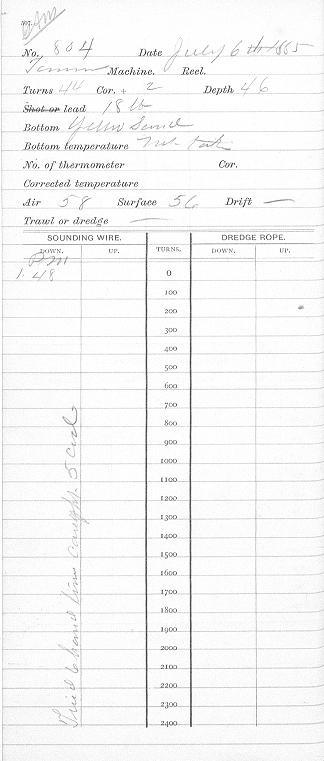 No. 804 Date July 6th 1885
Tanner Machine. Reel.
Turns 44 Cor. + 2 Depth 46
Shot or lead 18 lb
Bottom Yellow Sand
Bottom temperature Not tak
No. of thermometer Cor.
Corrected temperature
Air 58 Surface 56 Drift —
Trawl or dredge —
SOUNDING WIRE. TURNS. DREDGE ROPE.
DOWN. UP. DOWN. UP.
PM
1.48 0
100
200
300
400
500
600
700
800
900
1000
1100
1200
1300
1400
1500
1600
1700
1800
1900
2000
2100
2200
2300
2400
Tried 6 hand lines caught 5 cod